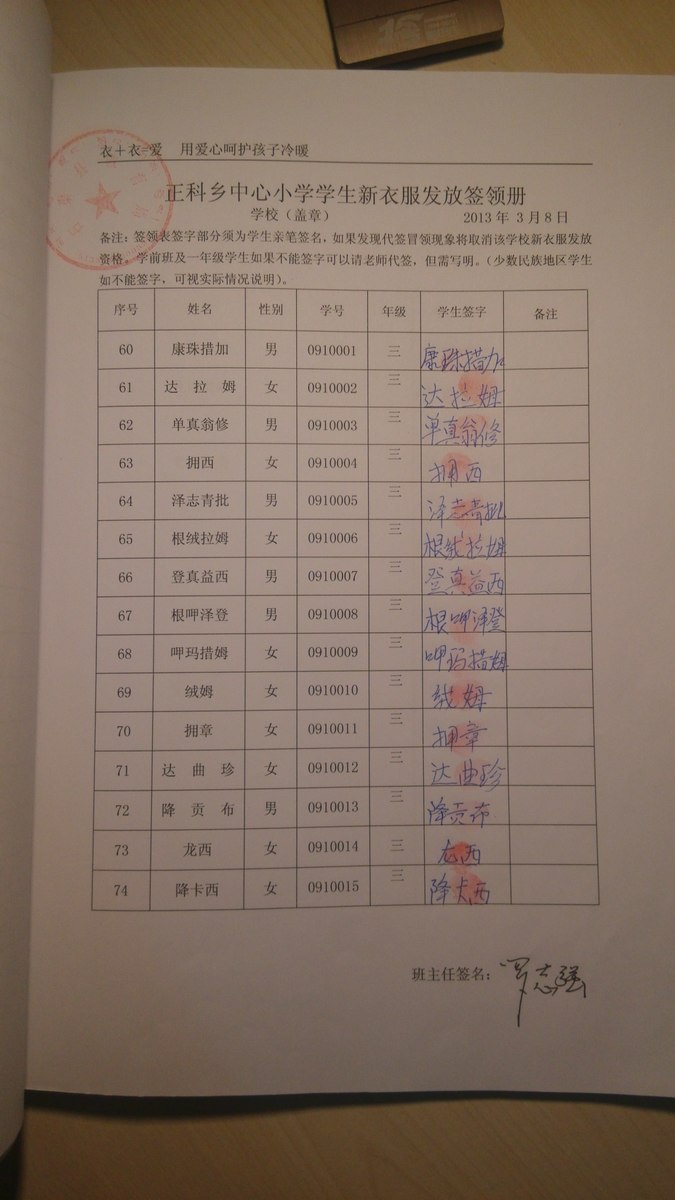 衣＋衣=爱 用爱心呵护孩子冷暖
正科乡中心小学学生新衣服发放签领册
学校（盖章） 2013 年 3 月 8 日
备注：签领表签字部分须为学生亲笔签名，如果发现代签冒领现象将取消该学校新衣服发放
资格。学前班及一年级学生如果不能签字可以请老师代签，但需写明。（少数民族地区学生
如不能签字，可视实际情况说明）。
序号 姓名 性别 学号 年级 学生签字 备注
60 康珠措加 男 0910001 三 康珠措加
61 达拉姆 女 0910002 三 达拉姆
62 单真翁修 男 0910003 三 单真翁修
63 拥西 女 0910004 三 拥西
64 泽志青批 男 0910005 三 泽志青批
65 根绒拉姆 女 0910006 三 根绒拉姆
66 登真益西 男 0910007 三 登真益西
67 根呷泽登 男 0910008 三 根呷泽登
68 呷玛措姆 女 0910009 三 呷玛措姆
69 绒姆 女 0910010 三 绒姆
70 拥章 女 0910011 三 拥章
71 达曲珍 女 0910012 三 达曲珍
72 降贡布 男 0910013 三 降贡布
73 龙西 女 0910014 三 龙西
74 降卡西 女 0910015 三 降卡西
班主任签名：罗志强